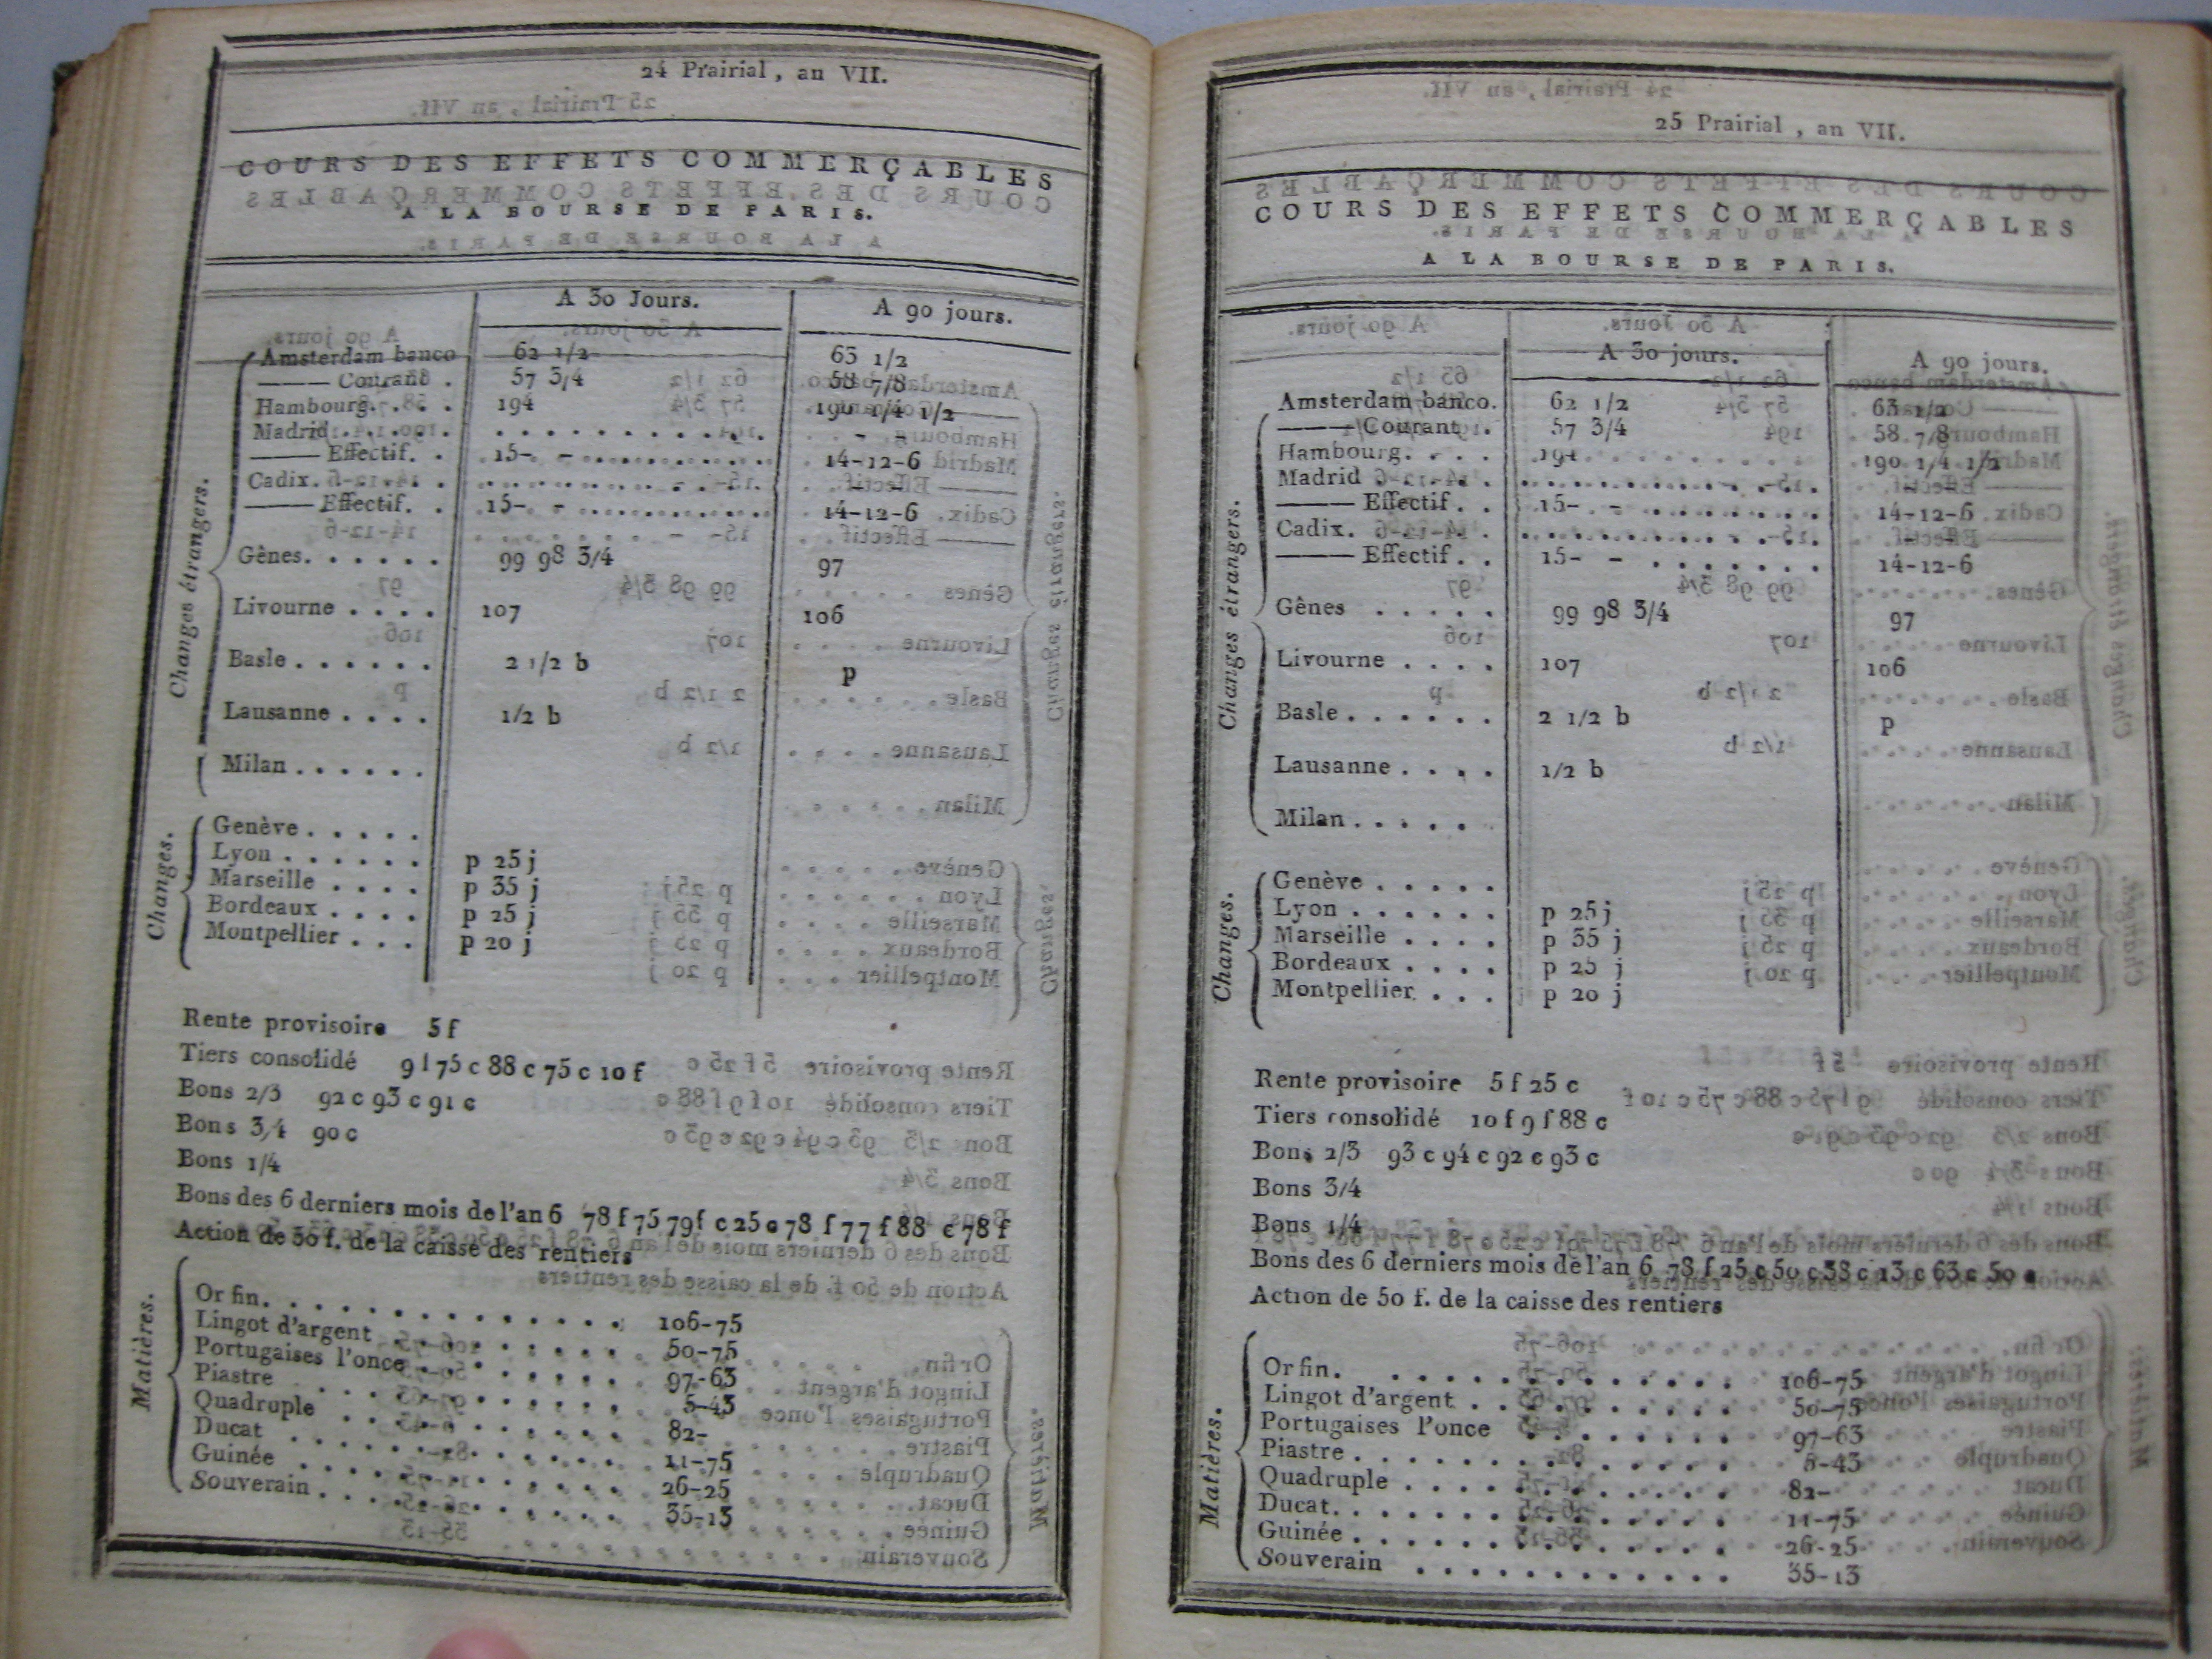 24 Prairial, an VII.
COURS DES EFFETS COMMERÇABLES
A LA BOURSE DE PARIS.
A 30 Jours. A 90 jours.
Changes étrangers.
Amsterdam banco 62 1/2 63 1/2
——— Courant . 57 3/4 58 7/8
Hambourg. . . . 194 190 1/4 1/2
Madrid . . . . .
——— Effectif. . 15- - 14-12-6
Cadix.
——— Effectif. . 15- - 14-12-6
Gênes. . . . . . 99 98 3/4 97
Livourne . . . . 107 106
Basle . . . . . . 2 1/2 b p
Lausanne . . . . 1/2 b
Milan . . . . . .
Changes.
Genève . . . . .
Lyon . . . . . . p 25 j
Marseille . . . . p 35 j
Bordeaux . . . . p 25 j
Montpellier . . . p 20 j
Rente provisoire 5 f
Tiers consolidé 9 f 75 c 88 c 75 c 10 f
Bons 2/3 92 c 93 c 91 c
Bons 3/4 90 c
Bons 1/4
Bons des 6 derniers mois de l'an 6 78 f 75 79f c 25 c 78 f 77 f 88 c 78 f
Action de 50 f. de la caisse des rentiers
Matières.
Or fin. . . . . . . . . . . 106-75
Lingot d'argent . . . . . . . 50-75
Portugaises l'once . . . . . . 97-63
Piastre . . . . . . . . . . 5-43
Quadruple . . . . . . . . . 82-
Ducat . . . . . . . . . . 11-75
Guinée . . . . . . . . . . 26-25
Souverain . . . . . . . . . 35-13
25 Prairial, an VII.
COURS DES EFFETS COMMERÇABLES
A LA BOURSE DE PARIS.
A 30 jours. A 90 jours.
Changes étrangers.
Amsterdam banco. 62 1/2 63 1/2
——— Courant . 57 3/4 58 7/8
Hambourg. . . . 194 190 1/4 1/2
Madrid
——— Effectif . . 15- - 14-12-6
Cadix.
——— Effectif . . 15- - 14-12-6
Gênes . . . . . 99 98 3/4 97
Livourne . . . . 107 106
Basle . . . . . . 2 1/2 b p
Lausanne . . . . 1/2 b
Milan . . . . .
Changes.
Genève . . . . .
Lyon . . . . . . p 25 j
Marseille . . . . p 35 j
Bordeaux . . . . p 25 j
Montpellier. . . . p 20 j
Rente provisoire 5 f 25 c
Tiers consolidé 10 f 9 f 88 c
Bons 2/3 93 c 94 c 92 c 93 c
Bons 3/4
Bons 1/4
Bons des 6 derniers mois de l'an 6 78 f 25 c 50 c 38 c 13 c 63 c 50 c
Action de 50 f. de la caisse des rentiers
Matières.
Or fin. . . . . . . . . . . 106-75
Lingot d'argent . . . . . . . 50-75
Portugaises l'once . . . . . . 97-63
Piastre . . . . . . . . . . 5-43
Quadruple . . . . . . . . . 82-
Ducat. . . . . . . . . . . 11-75
Guinée . . . . . . . . . . 26-25
Souverain . . . . . . . . . 35-13